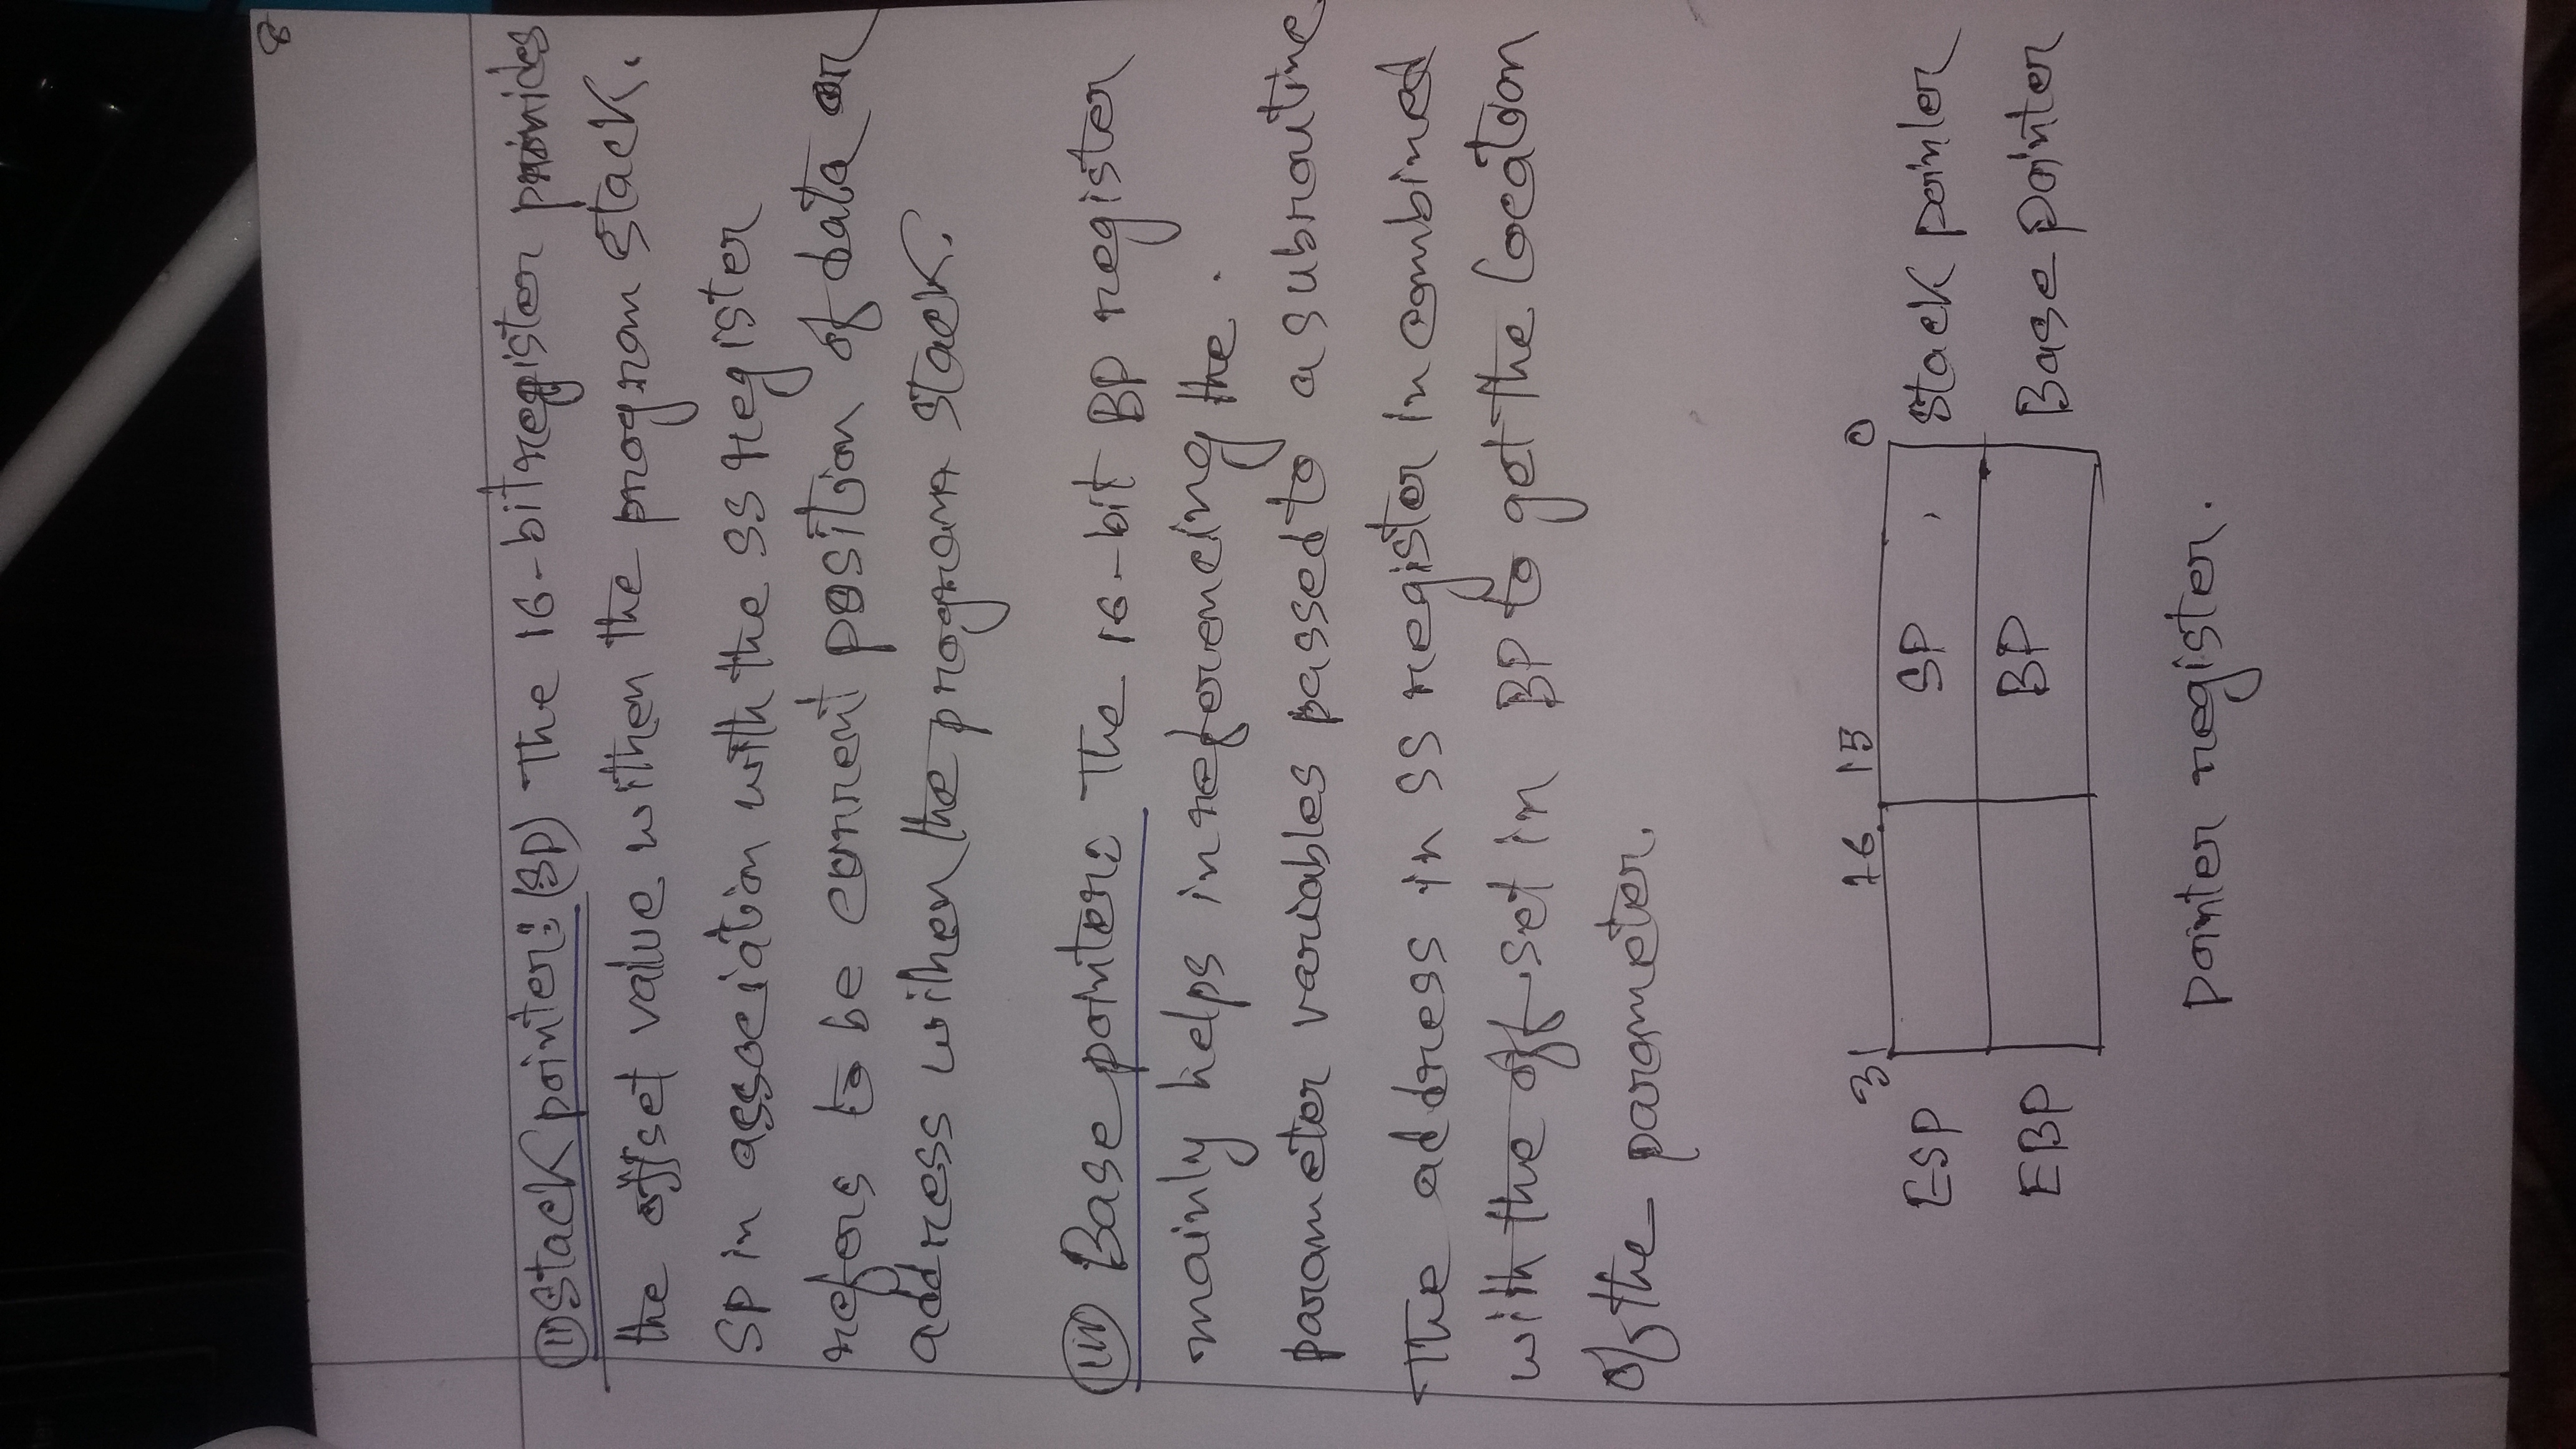 8
(ii) Stack pointer: (SP) The 16-bit register provides
the offset value withen the program stack.
SP in association with the SS register
refers to be current position of data or
address withen the program stack.
(iii) Base pointer: The 16-bit BP register
mainly helps in referencing the
parameter variables passed to a subroutine
The address in SS register in combined
with the off-set in BP to get the location
of the parameter.
31 16 15 0
ESP SP Stack pointer
EBP BP Base pointer
pointer register.